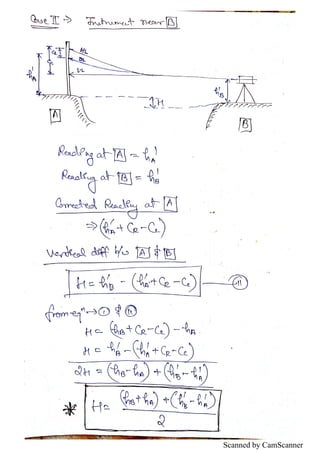 Case II → Instrument near B
h'A
h'B
H
A
B
Reading at A = h'A
Reading at B = h'B
Corrected Reading at A
⇒ (h'A + CR - CC)
Vertical diff b/w A & B
H = h'B - (h'A + CR - CC) — II
from eqn → I & II
H = (hB + CR - CC) - hA
H = h'B - (h'A + CR - CC)
2H = (hB - hA) + (h'B - h'A)
* H = (hB + hA) + (h'B - h'A)
2
Scanned by CamScanner